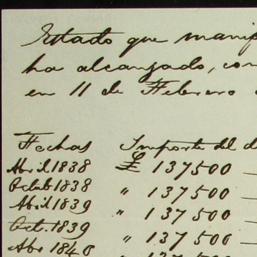 Estado que manif
ha alcanzado, con
en 11 de Febrero
Fechas Importe del d
Abril 1838 £ 137500
Octub 1838 " 137500
Abril 1839 " 137500
Oct. 1839 " 137500
Abr 1840 " 137500